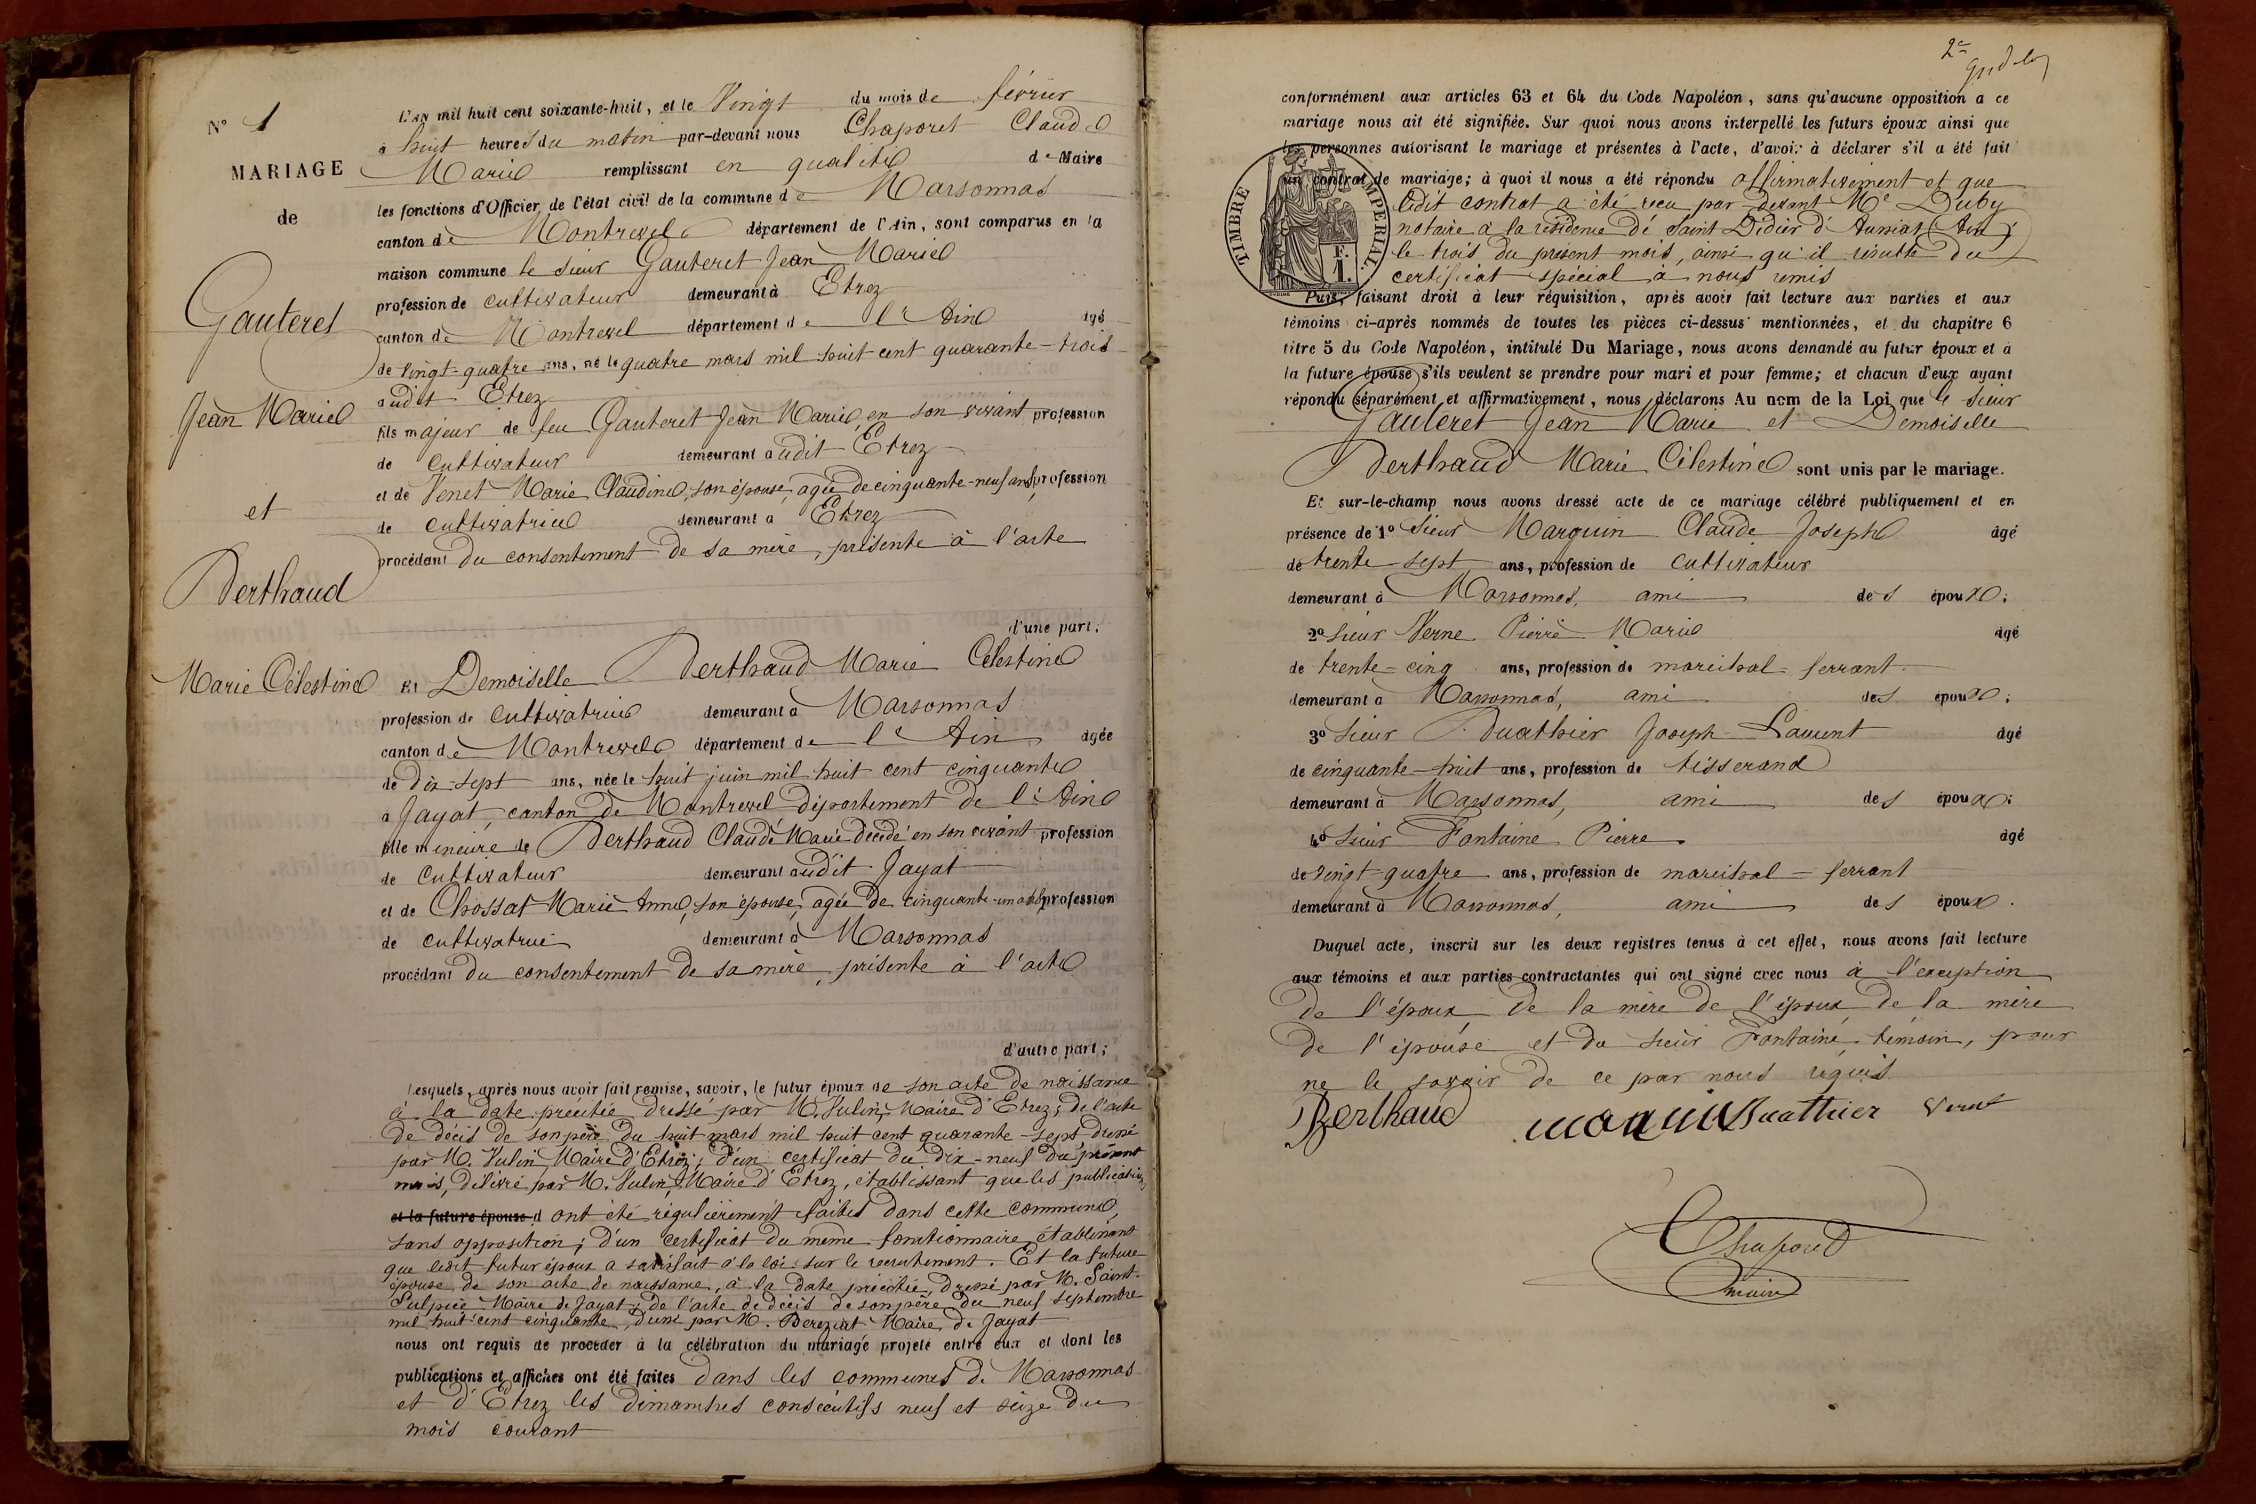 N° 1
MARIAGE
de
Gauteret
Jean Marie
et
Berthaud
Marie Célestine
L'an mil huit cent soixante-huit, et le Vingt du mois de février
à huit heures du matin par-devant nous Chaporet Claude
Marie remplissant en qualité de Maire
les fonctions d'Officier de l'état civil de la commune de Marsonnas
canton de Montrevel département de l'Ain, sont comparus en la
maison commune le sieur Gauteret Jean Marie
profession de cultivateur demeurant à Etrez
canton de Montrevel département de l'Ain âgé
de vingt-quatre ans, né le quatre mars mil huit cent quarante-trois
audit Etrez
fils majeur de feu Gauteret Jean Marie, en son vivant profession
de cultivateur demeurant audit Etrez
et de Venet Marie Claudine, son épouse, agée de cinquante-neuf ans, profession
de cultivatrice demeurant à Etrez
procédant du consentement de sa mère, présente à l'acte
d'une part;
Et Demoiselle Berthaud Marie Célestine
profession de cultivatrice demeurant à Marsonnas
canton de Montrevel département de l'Ain âgée
de dix-sept ans, née le huit juin mil huit cent cinquante
à Jayat, canton de Montrevel département de l'Ain
fille mineure de Berthaud Claude Marie décédé en son vivant profession
de cultivateur demeurant audit Jayat
et de Chossat Marie Anne, son épouse, agée de cinquante-un ans, profession
de cultivatrice demeurant à Marsonnas
procédant du consentement de sa mère, présente à l'acte
d'autre part;
Lesquels, après nous avoir fait remise, savoir, le futur époux de son acte de naissance
à la date précitée dressé par M. Vulin, Maire d'Etrez; de l'acte
de décès de son père du huit mars mil huit cent quarante-sept dressé
par M. Vulin, Maire d'Etrez; d'un certificat du dix-neuf du présent
mois, délivré par M. Vulin, Maire d'Etrez, établissant que les publications
et la future épouse d ont été régulièrement faites dans cette commune,
sans opposition; d'un certificat du même fonctionnaire, établissant
que ledit futur époux a satisfait à la loi sur le recrutement. Et la future
épouse de son acte de naissance, à la date précitée, dressé par M. Saint-
Sulpice Maire de Jayat; de l'acte de décès de son père du neuf septembre
mil huit cent cinquante, dressé par M. Bereziat Maire de Jayat
nous ont requis de procéder à la célébration du mariage projeté entre eux et dont les
publications et affiches ont été faites dans les communes de Marsonnas
et d'Etrez les dimanches consécutifs neuf et seize du
mois courant
2e
conformément aux articles 63 et 64 du Code Napoléon, sans qu'aucune opposition a ce
mariage nous ait été signifiée. Sur quoi nous avons interpellé les futurs époux ainsi que
les personnes autorisant le mariage et présentes à l'acte, d'avoir à déclarer s'il a été fait
un contrat de mariage; à quoi il nous a été répondu affirmativement et que
ledit contrat a été reçu par devant Me Duby
notaire à la résidence de Saint Didier d'Aussiat (Ain)
le trois du présent mois, ainsi qu'il résulte du
certificat spécial à nous remis
TIMBRE IMPERIAL
F.
1.
Puis, faisant droit à leur réquisition, après avoir fait lecture aux parties et aux
témoins ci-après nommés de toutes les pièces ci-dessus mentionnées, et du chapitre 6
titre 5 du Code Napoléon, intitulé Du Mariage, nous avons demandé au futur époux et à
la future épouse s'ils veulent se prendre pour mari et pour femme; et chacun d'eux ayant
répondu séparément et affirmativement, nous déclarons Au nom de la Loi que le sieur
Gauteret Jean Marie et Demoiselle
Berthaud Marie Célestine sont unis par le mariage.
Et sur-le-champ nous avons dressé acte de ce mariage célébré publiquement et en
présence de 1° sieur Marguin Claude Joseph âgé
de trente-sept ans, profession de cultivateur
demeurant à Marsonnas, ami des époux;
2° sieur Verne Pierre Marie âgé
de trente-cinq ans, profession de maréchal-ferrant
demeurant à Marsonnas, ami des époux;
3° sieur Buathier Joseph-Laurent âgé
de cinquante-huit ans, profession de tisserand
demeurant à Marsonnas, ami des époux;
4° sieur Fontaine Pierre âgé
de vingt-quatre ans, profession de maréchal-ferrant
demeurant à Marsonnas, ami des époux.
Duquel acte, inscrit sur les deux registres tenus à cet effet, nous avons fait lecture
aux témoins et aux parties contractantes qui ont signé avec nous à l'exception
de l'époux, de la mère de l'époux de la mère
de l'épouse et du sieur Fontaine, témoin, pour
ne le savoir de ce par nous requis
Berthaud Buathier
Chaporet
maire